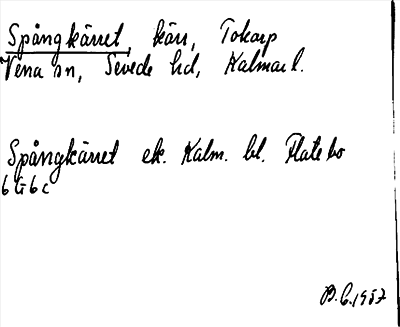 Spångkärret, kärr, Tokarp
Vena sn, Sevede hd, Kalmar l.
Spångkärret ek. Kalm. bl. Flatebo
6 G 6 c
B.C. 1957